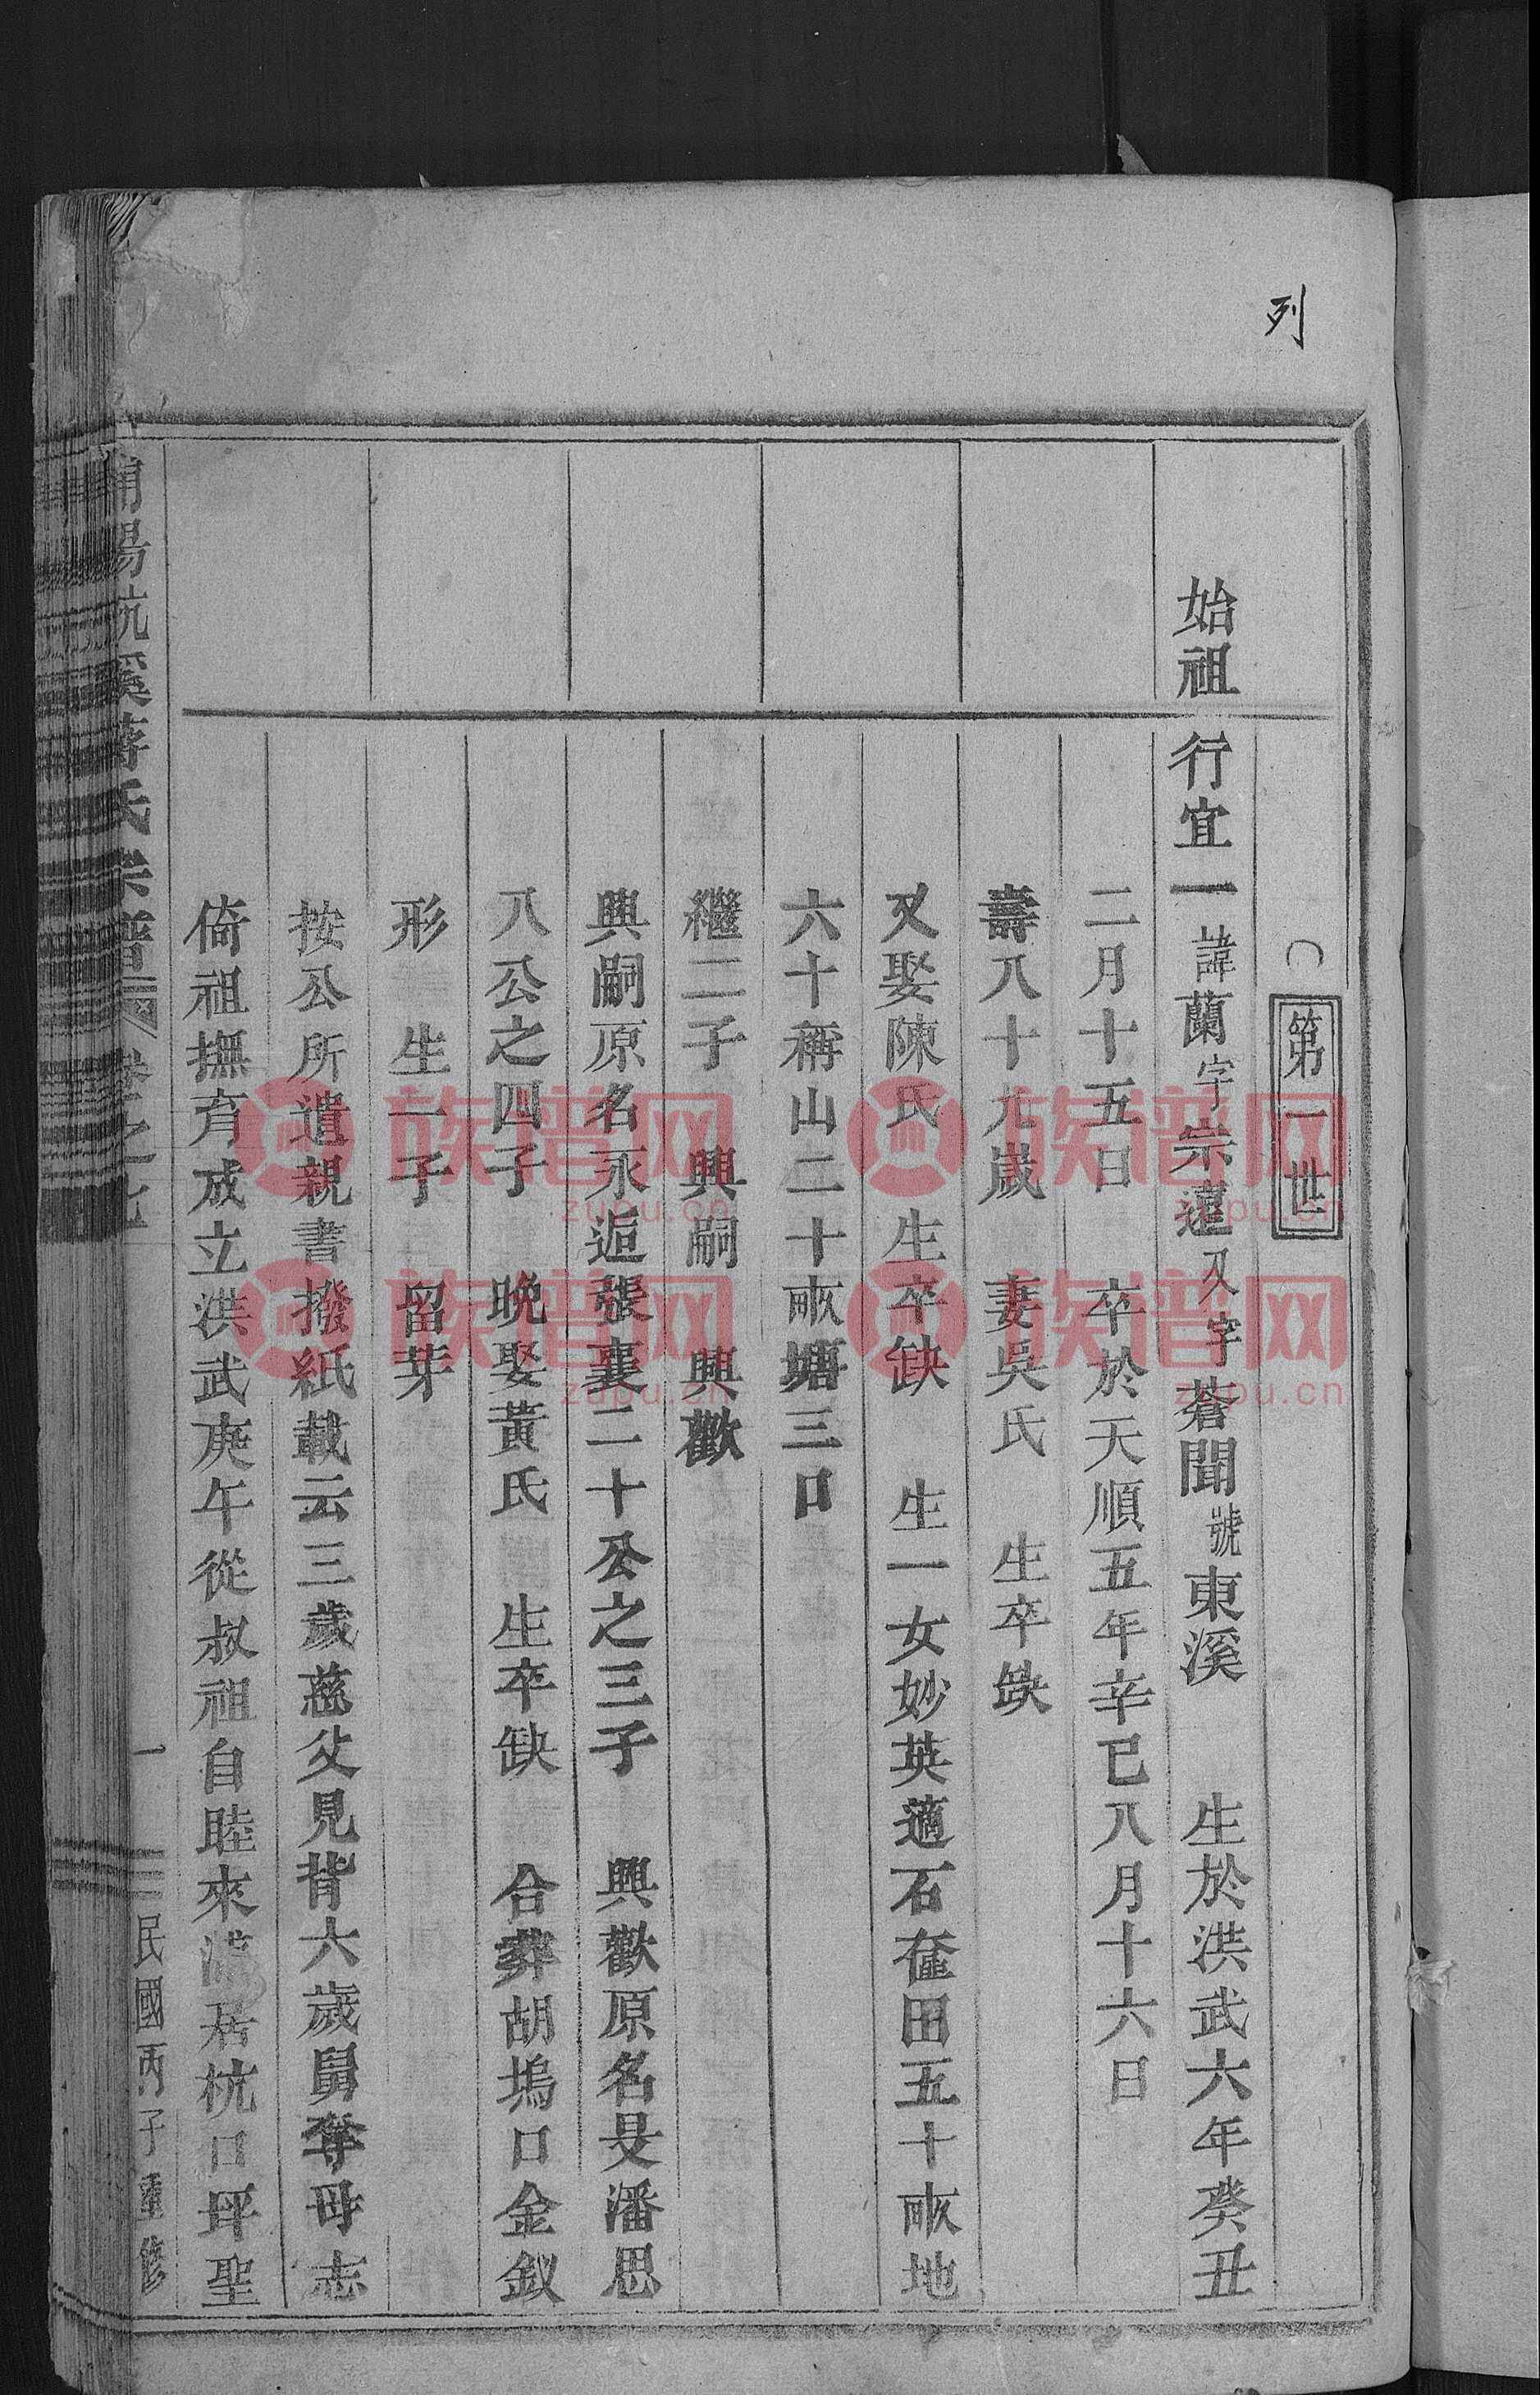 列
第一世
始祖
行宜一諱蘭字宗遠又字蒼聞號東溪 生於洪武六年癸丑
二月十五日 卒於天順五年辛已八月十六日
壽八十九歲 妻吳氏 生卒缺
又娶陳氏 生卒缺 生一女妙英適石奩田五十畝地
六十稱山二十畝塘三口
繼二子 興嗣 興歡
興嗣原名永逅張襄二十公之三子 興歡原名旻潘思
八公之四子 晚娶黃氏 生卒缺 合葬胡塢口金釵
形 生一子 留芽
按公所遺親書撥紙載云三歲慈父見背六歲舅奪母志
倚祖撫育成立洪武庚午從叔祖自睦來浦居杭口坪聖
浦陽杭溪蔣氏宗譜 卷之七
一
民國丙子重修
族普网
zupu.cn
族普网
zupu.cn
族普网
zupu.cn
族普网
zupu.cn